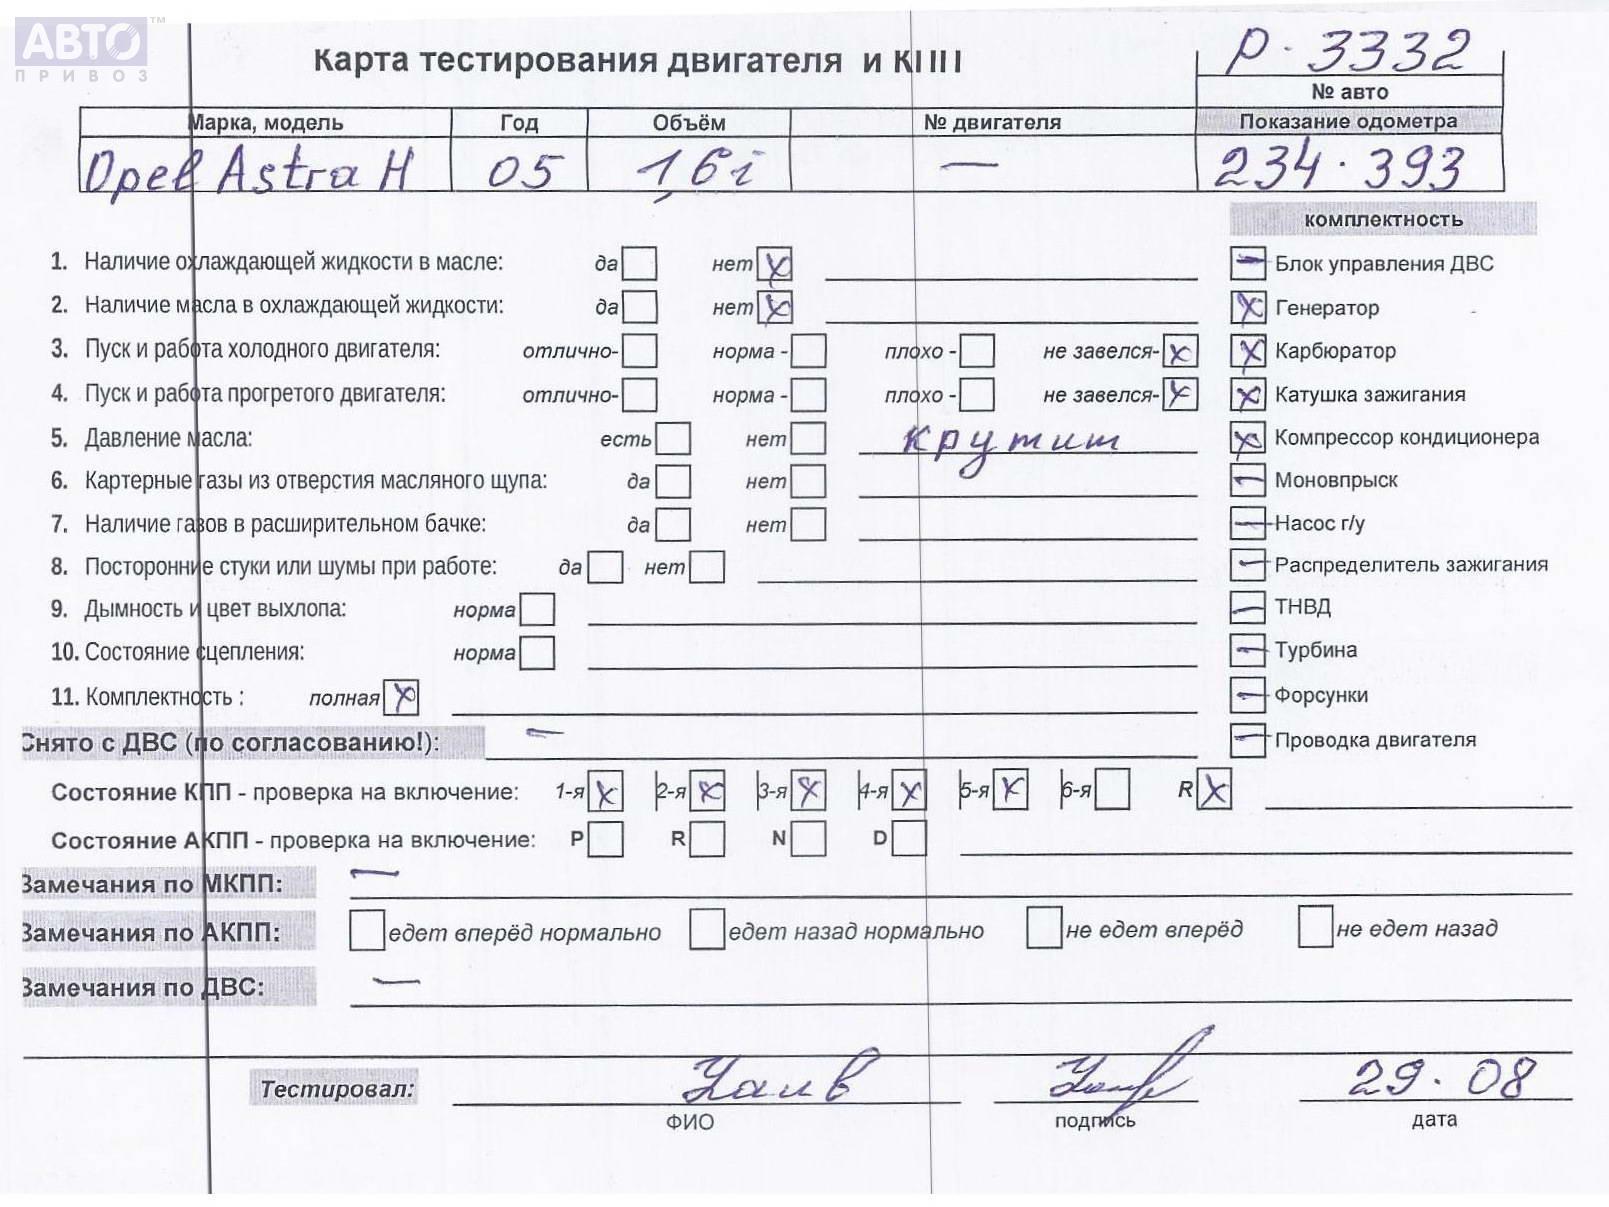 АВТО™
ПРИВОЗ
Карта тестирования двигателя и КПП
Р-3332
№ авто
Марка, модель Год Объём № двигателя Показание одометра
Opel Astra H 05 1,6i — 234.393
комплектность
1. Наличие охлаждающей жидкости в масле: да нет x
Блок управления ДВС
2. Наличие масла в охлаждающей жидкости: да нет x
x Генератор
3. Пуск и работа холодного двигателя: отлично- норма - плохо - не завелся- x
x Карбюратор
4. Пуск и работа прогретого двигателя: отлично- норма - плохо - не завелся- x
x Катушка зажигания
5. Давление масла: есть нет крутит
x Компрессор кондиционера
6. Картерные газы из отверстия масляного щупа: да нет
— Моновпрыск
7. Наличие газов в расширительном бачке: да нет
— Насос г/у
8. Посторонние стуки или шумы при работе: да нет
— Распределитель зажигания
9. Дымность и цвет выхлопа: норма
— ТНВД
10. Состояние сцепления: норма
— Турбина
11. Комплектность : полная x
— Форсунки
Снято с ДВС (по согласованию!): —
— Проводка двигателя
Состояние КПП - проверка на включение: 1-я x 2-я x 3-я x 4-я x 5-я x 6-я R x
Состояние АКПП - проверка на включение: P R N D
Замечания по МКПП: —
Замечания по АКПП: едет вперёд нормально едет назад нормально не едет вперёд не едет назад
Замечания по ДВС: —
Тестировал: 29.08
ФИО подпись дата